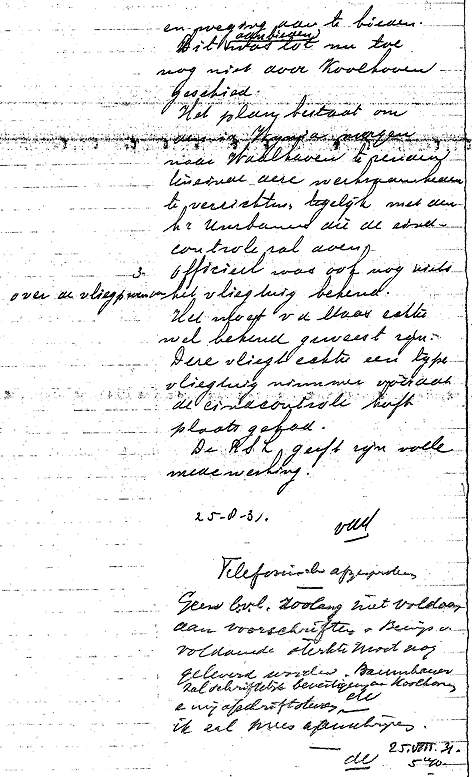 en weging aan te bieden.
aanbieden
Dit was tot nu toe
nog niet door Koolhoven
geschied.
Het plan bestaat om
morgen
naar Waalhaven te zenden
teneinde deze werkzaamheden
te verrichten, tegelijk met den
hr die de eind-
controle zal doen,
3.
Officieel was ook nog niets
over de vliegproeven van het vliegtuig bekend.
Het moet v d Maas echter
wel bekend geweest zijn.
Deze vliegt echter een type
vliegtuig nimmer vóórdat
de eindcontrole heeft
plaats gehad.
De RSL geeft zijn volle
medewerking.
25-8-31.
Telefonisch afgesproken
Geen bvl. Zoolang niet voldaan
aan voorschriften. Bewijs v
voldoende sterkte moet nog
geleverd worden. Baumhauer
zal schriftelijk bevestigen aan Koolhoven
en mij afschrift sturen.
ik zal
25.VIII.31.
5 40